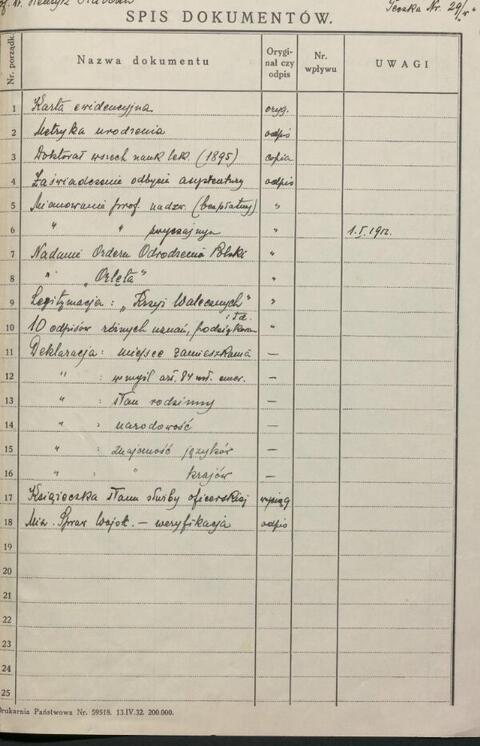 SPIS DOKUMENTÓW.
Teczka Nr. 29/
Nr. porządk. Nazwa dokumentu Oryginał czy odpis Nr. wpływu UWAGI
1 Karta ewidencyjna oryg.
2 Metryka urodzenia odpis
3 Doktorat wszech nauk lek. (1895) copia
4 Zaświadczenie odbycia asystentury odpis
5 Mianowanie prof. nadzw. (bezpłatny) "
6 " " zwyczajnym " 1.I.1912.
7 Nadanie Orderu Odrodzenia Polski "
8 " "Orlęta" "
9 Legitymacja: "Krzyż Walecznych" "
10 10 odpisów różnych uznań, podziękowań itd. "
11 Deklaracja: miejsce zamieszkania —
12 " : w myśl art. 84 ust. emer. —
13 " : stan rodzinny —
14 " : narodowość —
15 " : znajomość języków —
16 " : " krajów —
17 Książeczka stanu służby oficerskiej wyciąg
18 Min. Spraw Wojsk. — weryfikacja odpis
19
20
21
22
23
24
25
Drukarnia Państwowa Nr. 59518. 13.IV.32. 200.000.